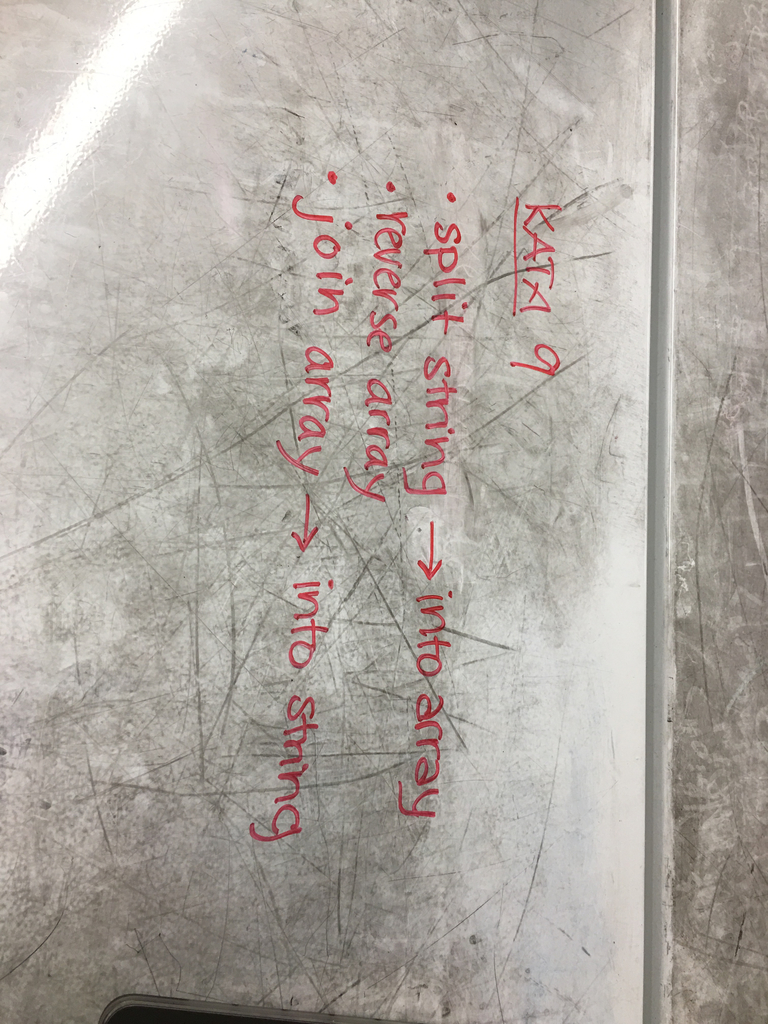 KATA 9
• split string → into array
• reverse array
• join array → into string